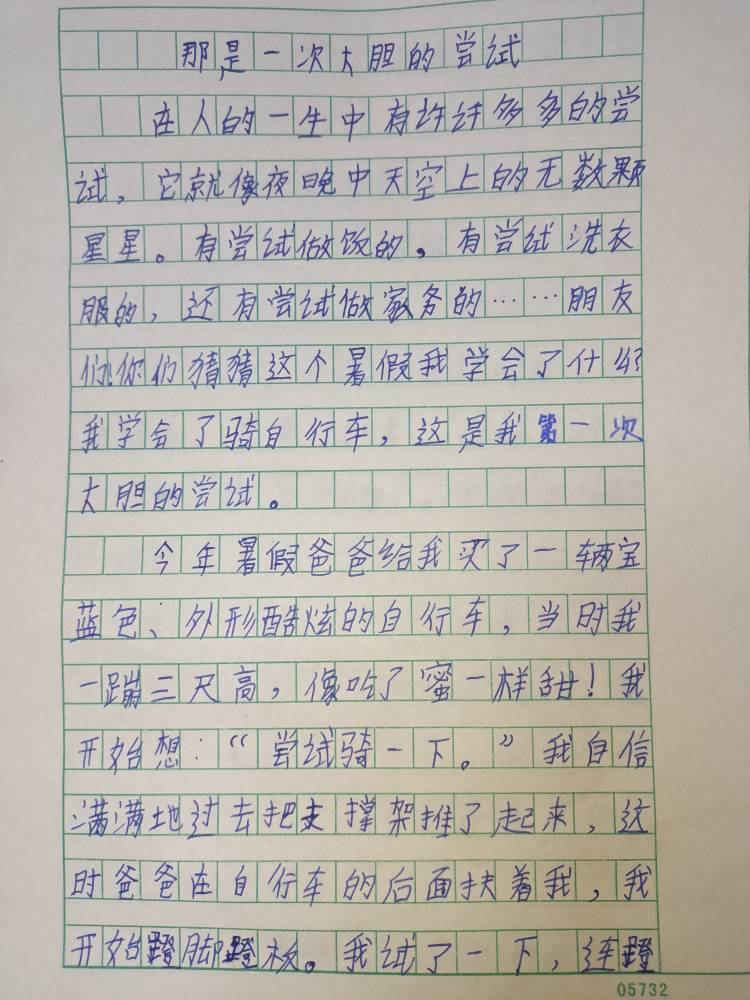 那是一次大胆的尝试
在人的一生中有许许多多的尝
试，它就像夜晚中天空上的无数颗
星星。有尝试做饭的，有尝试洗衣
服的，还有尝试做家务的……朋友
们！你们猜猜这个暑假我学会了什么？
我学会了骑自行车，这是我第一次
大胆的尝试。
今年暑假爸爸给我买了一辆宝
蓝色、外形酷炫的自行车，当时我
一蹦三尺高，像吃了蜜一样甜！我
开始想：“尝试骑一下。”我自信
满满地过去把支撑架推了起来，这
时爸爸在自行车的后面扶着我，我
开始蹬脚蹬板。我试了一下，连蹬
05732